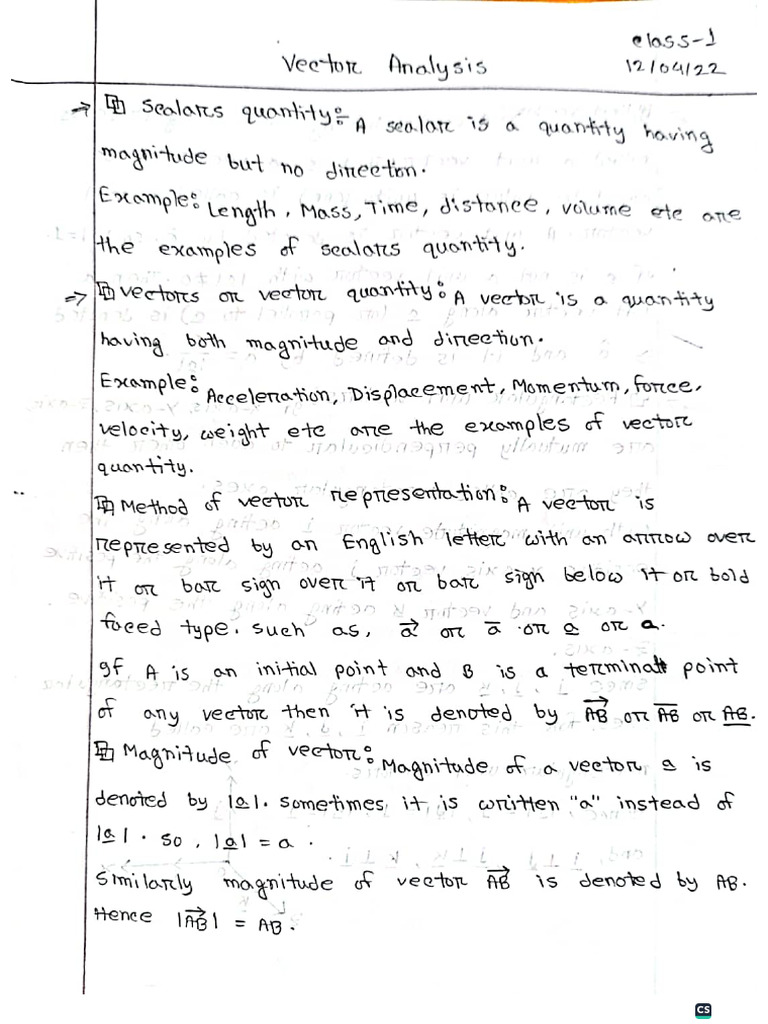 class-1
Vector Analysis
12/04/22
⇒ Scalars quantity: A scalar is a quantity having
magnitude but no direction.
Example: Length, Mass, Time, distance, volume etc are
the examples of scalars quantity.
⇒ vectors or vector quantity: A vector is a quantity
having both magnitude and direction.
Example: Acceleration, Displacement, Momentum, force,
velocity, weight etc are the examples of vector
quantity.
Method of vector representation: A vector is
represented by an English letter with an arrow over
it or bar sign over it or bar sign below it or bold
foced type. such as, a⃗ or a̅ or a̲ or **a**.
If A is an initial point and B is a terminal point
of any vector then it is denoted by A⃗B⃗ or A̅B̅ or A̲B̲.
Magnitude of vector: Magnitude of a vector a̲ is
denoted by |a̲|. sometimes it is written "a" instead of
|a̲|. so, |a̲| = a.
Similarly magnitude of vector A⃗B⃗ is denoted by AB.
Hence |A⃗B⃗| = AB.
CS